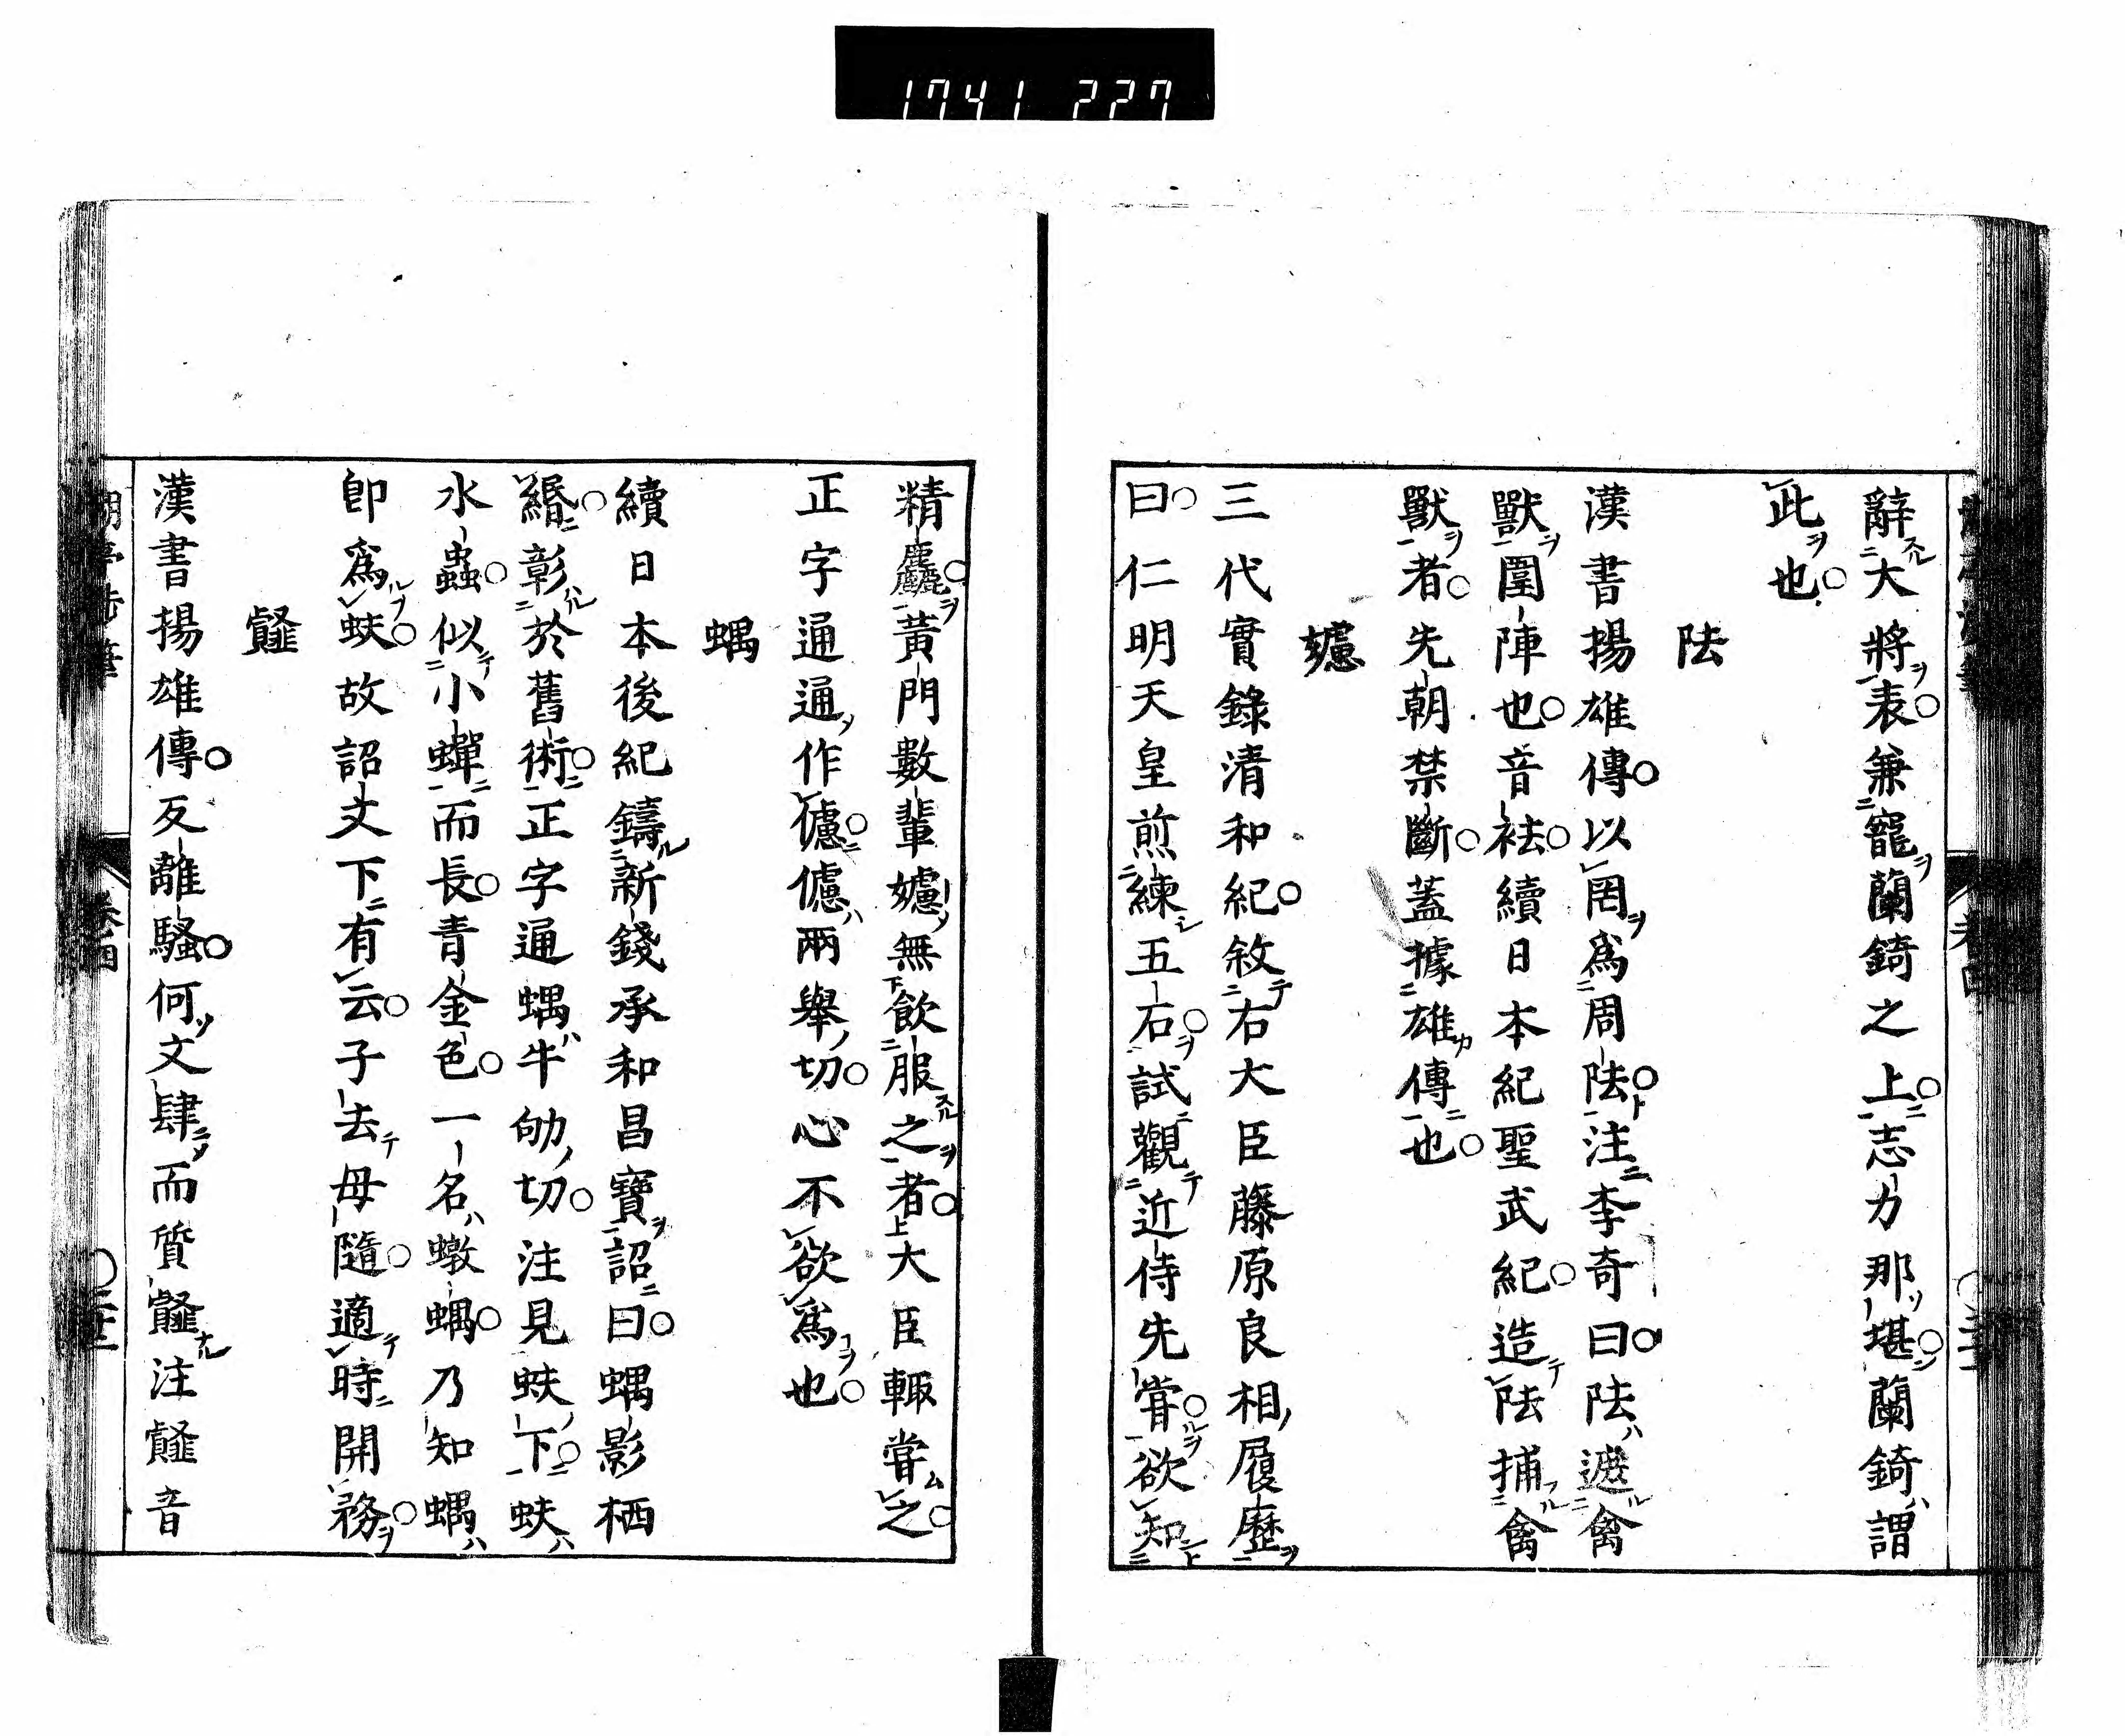 1741 227
辭大將表兼寵蘭錡之上志力那堪蘭錡謂
此也
阹
漢書揚雄傳以罔爲周阹注李奇曰阹遮禽
獸圍陣也音袪續日本紀聖武紀造阹捕禽
獸者先朝禁斷蓋據雄傳也
㦣
三代實錄清和紀敘右大臣藤原良相履歷
曰仁明天皇煎練五石試觀近侍先嘗欲知
精麤黃門數輩㦣無飲服之者大臣輙嘗之
正字通通作儢儢兩舉切心不欲爲也
蝺
續日本後紀鑄新錢承和昌寶詔曰蝺影栖
緡彰於舊術正字通蝺牛劬切注見蚨下蚨
水蟲似小蟬而長青金色一名蟙蝺乃知蝺
卽爲蚨故詔文下有云子去母隨適時開務
䪥
漢書揚雄傳反離騷何文肆而質䪥注䪥音
卷四